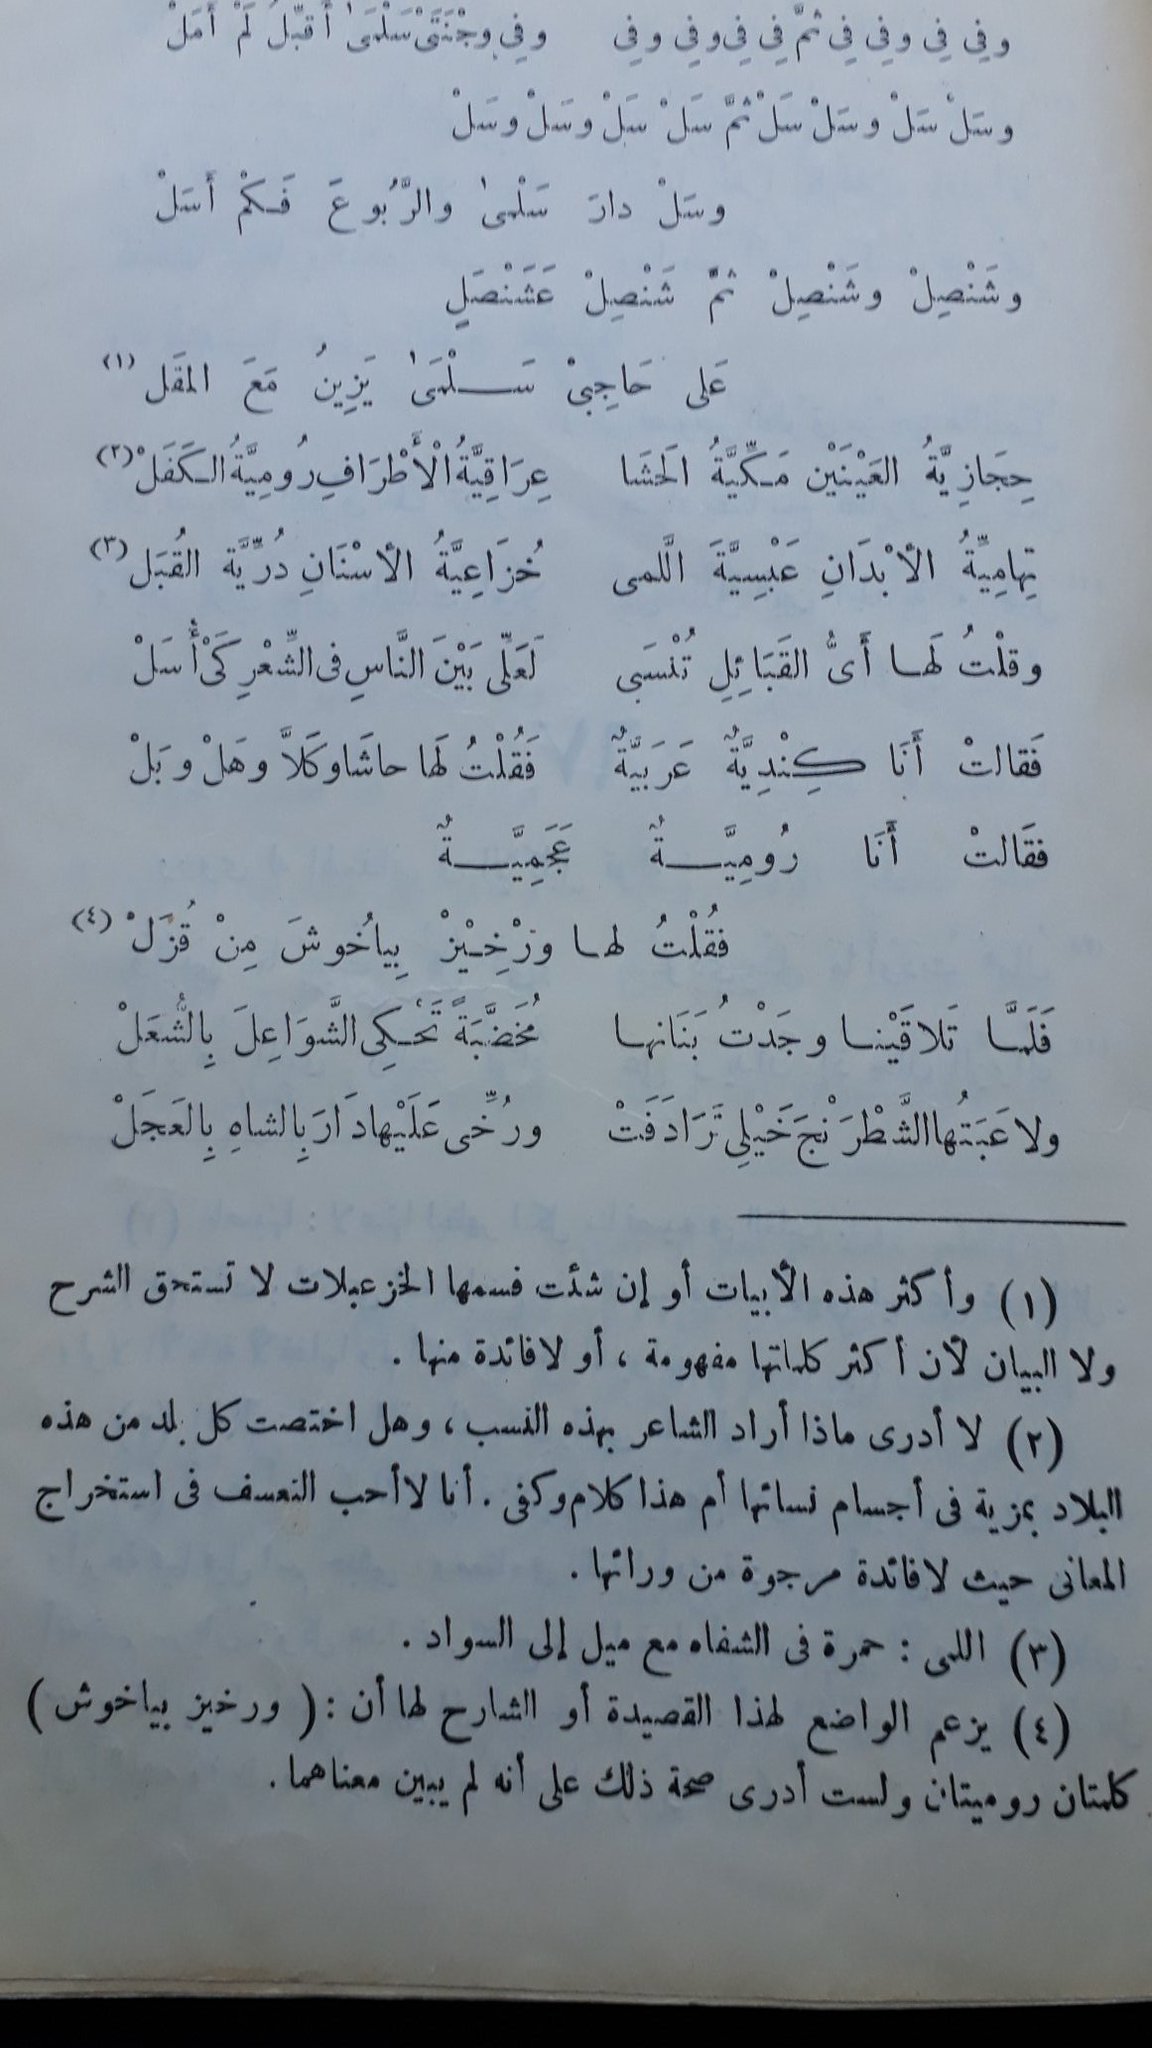 وفِي فِي وفِي فِي ثمَّ فِي فِي وفِي وفِي وفِي وجْنَتَىْ سَلْمَىٰ أقبِّلُ لَمْ أمَلْ
وسَلْ سَلْ وسَلْ سَلْ ثمَّ سَلْ سَلْ وسَلْ وسَلْ
وسَلْ دارَ سَلْمىٰ والرَّبُوعَ فَكَمْ أسَلْ
وشَنْصِلْ وشَنْصِلْ ثمَّ شَنْصِلْ عَشَنْصَلٍ
عَلى حَاجِبىْ سَلْمَىٰ يَزِينُ مَعَ المقَل (١)
حِجَازِيَّةُ العَيْنَيْن مَكِّيَّةُ الحَشَا عِرَاقِيَّةُ الْأَطْرَافِ رُومِيَّةُ الكَفَلْ (٢)
تِهامِيِّةُ الأبْدَانِ عَبْسِيَّةَ الَّلمى خُزَاعِيَّةُ الأسْنَانِ دُرِّيَّة القُبَل (٣)
وقلْتُ لَها أَىُّ القَبَائِلِ تُنْسَبى لَعَلِّى بَيْنَ النَّاسِ فى الشِّعْرِ كَىْ أُسَلْ
فَقالتْ أَنَا كِنْدِيَّةٌ عَرَبيَّةٌ فَقُلْتُ لَها حاشَا وكَلاَّ وهَلْ وبَلْ
فقَالتْ أَنَا رُومِيَّةٌ عَجَمِيَّةٌ
فقُلْتُ لها ورْخِيْزْ بِياخُوشَ مِنْ قُزَلْ (٤)
فَلَمَّا تَلاقَيْنا وجَدْتُ بَنَانَها مُخَضَّبَةً تَحْكِى الشَّوَاعِلَ بِالشُّعَلْ
ولاعَبَتُها الشَّطْرَنْجَ خَيْلِى تَرَادَفَتْ ورُخِّى عَلَيْها دَارَ بِالشاهِ بِالعَجَلْ
(١) وأكثر هذه الأبيات أو إن شئت فسمها الخزعبلات لا تستحق الشرح
ولا البيان لأن أكثر كلماتها مفهومة ، أو لافائدة منها .
(٢) لا أدرى ماذا أراد الشاعر بهذه النسب ، وهل اختصت كل بلد من هذه
البلاد بمزية فى أجسام نسائها أم هذا كلام وكفى . أنا لا أحب التعسف فى استخراج
المعانى حيث لافائدة مرجوة من ورائها .
(٣) اللمى : حمرة فى الشفاه مع ميل إلى السواد .
(٤) يزعم الواضع لهذا القصيدة أو الشارح لها أن : ( ورخيز بياخوش )
كلمتان روميتان ولست أدرى صحة ذلك على أنه لم يبين معناهما .